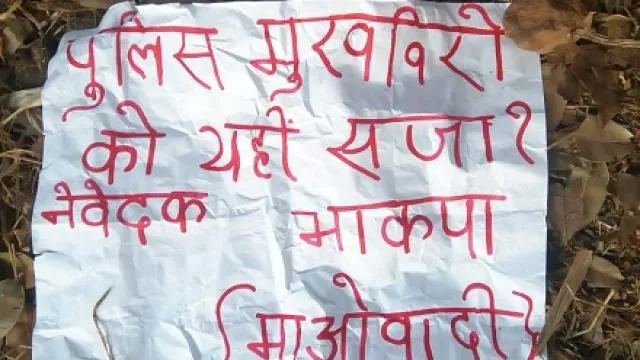 पुलिस मुखविरो
को यहीं सजा?
नेवेदक भाकपा
(माओवादी)